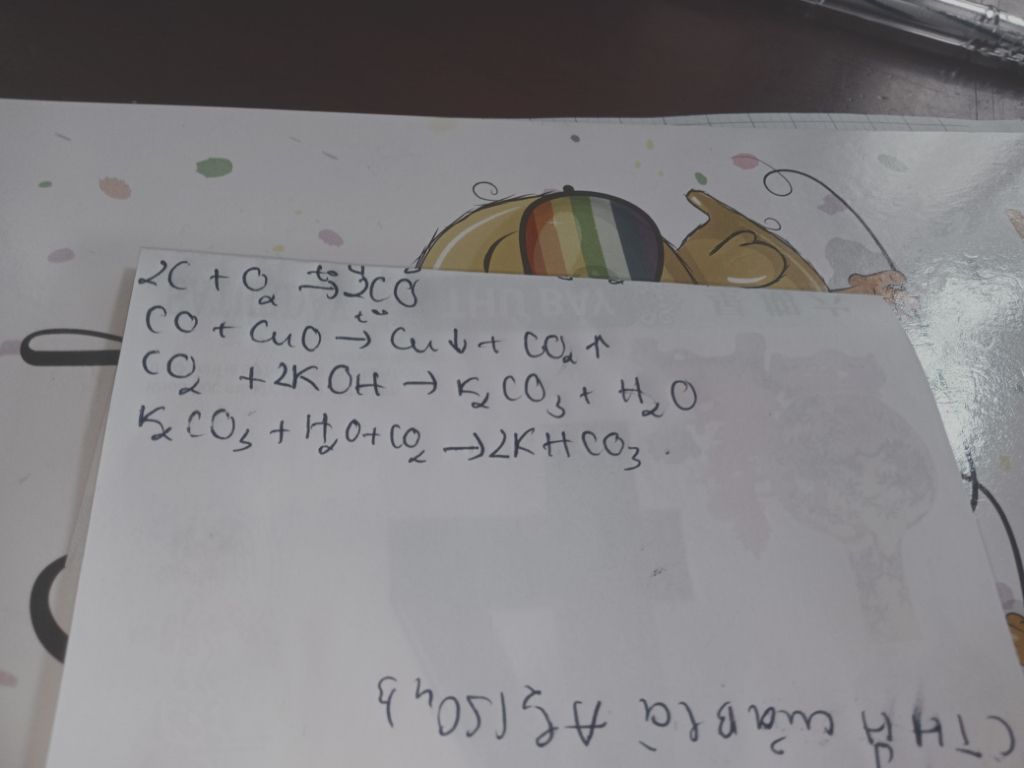 2C + O₂ →t° 2CO
CO + CuO →t° Cu↓ + CO₂↑
CO₂ + 2KOH → K₂CO₃ + H₂O
K₂CO₃ + H₂O + CO₂ → 2KHCO₃.
CTHH của B là Al₂(SO₄)₃
THU BAY